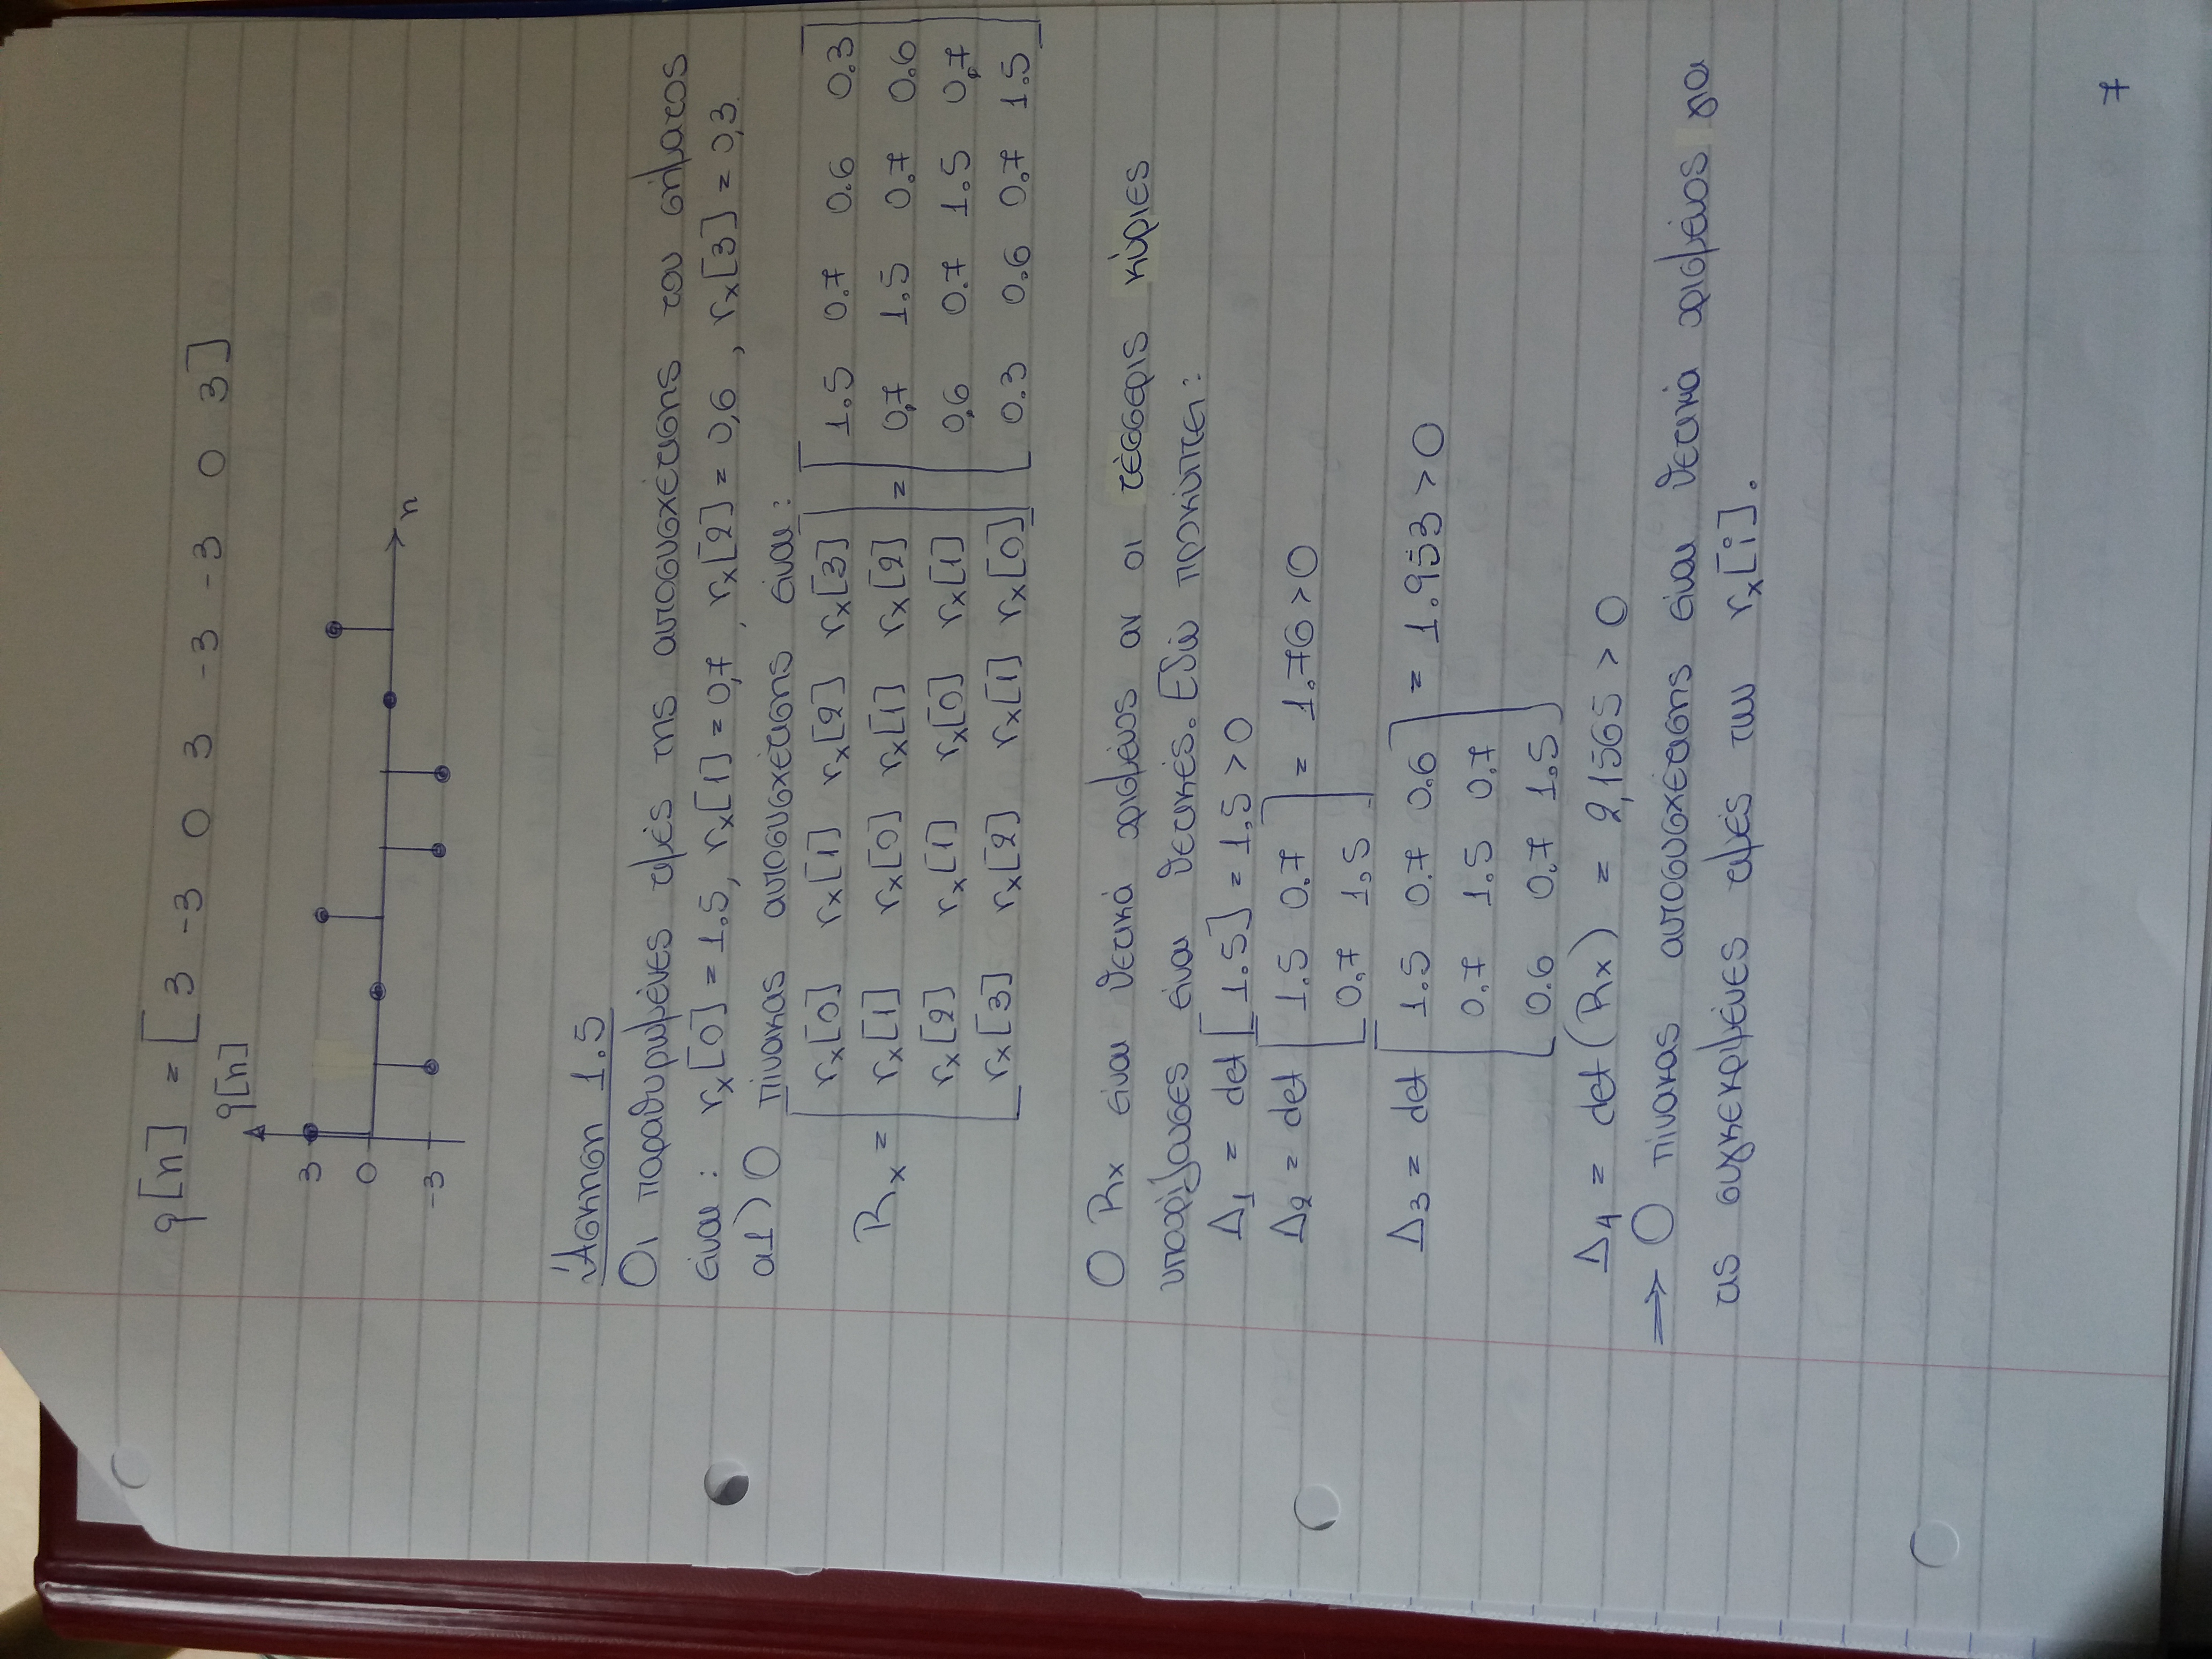 q[n] = [ 3 -3 0 3 -3 -3 0 3 ]
q[n]
3
0
-3
n
Άσκηση 1.5
Οι παραθυρωμένες τιμές της αυτοσυσχέτισης του σήματος
είναι : rx[0] = 1.5, rx[1] = 0,7 , rx[2] = 0,6 , rx[3] = 0,3.
α1) Ο πίνακας αυτοσυσχέτισης είναι :
Rx = [ rx[0] rx[1] rx[2] rx[3] ] = [ 1.5 0.7 0.6 0.3 ]
rx[1] rx[0] rx[1] rx[2] 0,7 1.5 0.7 0.6
rx[2] rx[1] rx[0] rx[1] 0,6 0.7 1.5 0,7
rx[3] rx[2] rx[1] rx[0] 0.3 0.6 0.7 1.5
Ο Rx είναι θετικά ορισμένος αν οι τέσσερις κύριες
υποορίζουσες είναι θετικές. Εδώ προκύπτει :
Δ1 = det [ 1.5 ] = 1.5 > 0
Δ2 = det [ 1.5 0.7 ] = 1.76 > 0
0.7 1.5
Δ3 = det [ 1.5 0.7 0.6 ] = 1.953 > 0
0.7 1.5 0.7
0.6 0.7 1.5
Δ4 = det (Rx) = 2,1565 > 0
⇒ Ο πίνακας αυτοσυσχέτισης είναι θετικά ορισμένος για
τις συγκεκριμένες τιμές των rx[i].
7